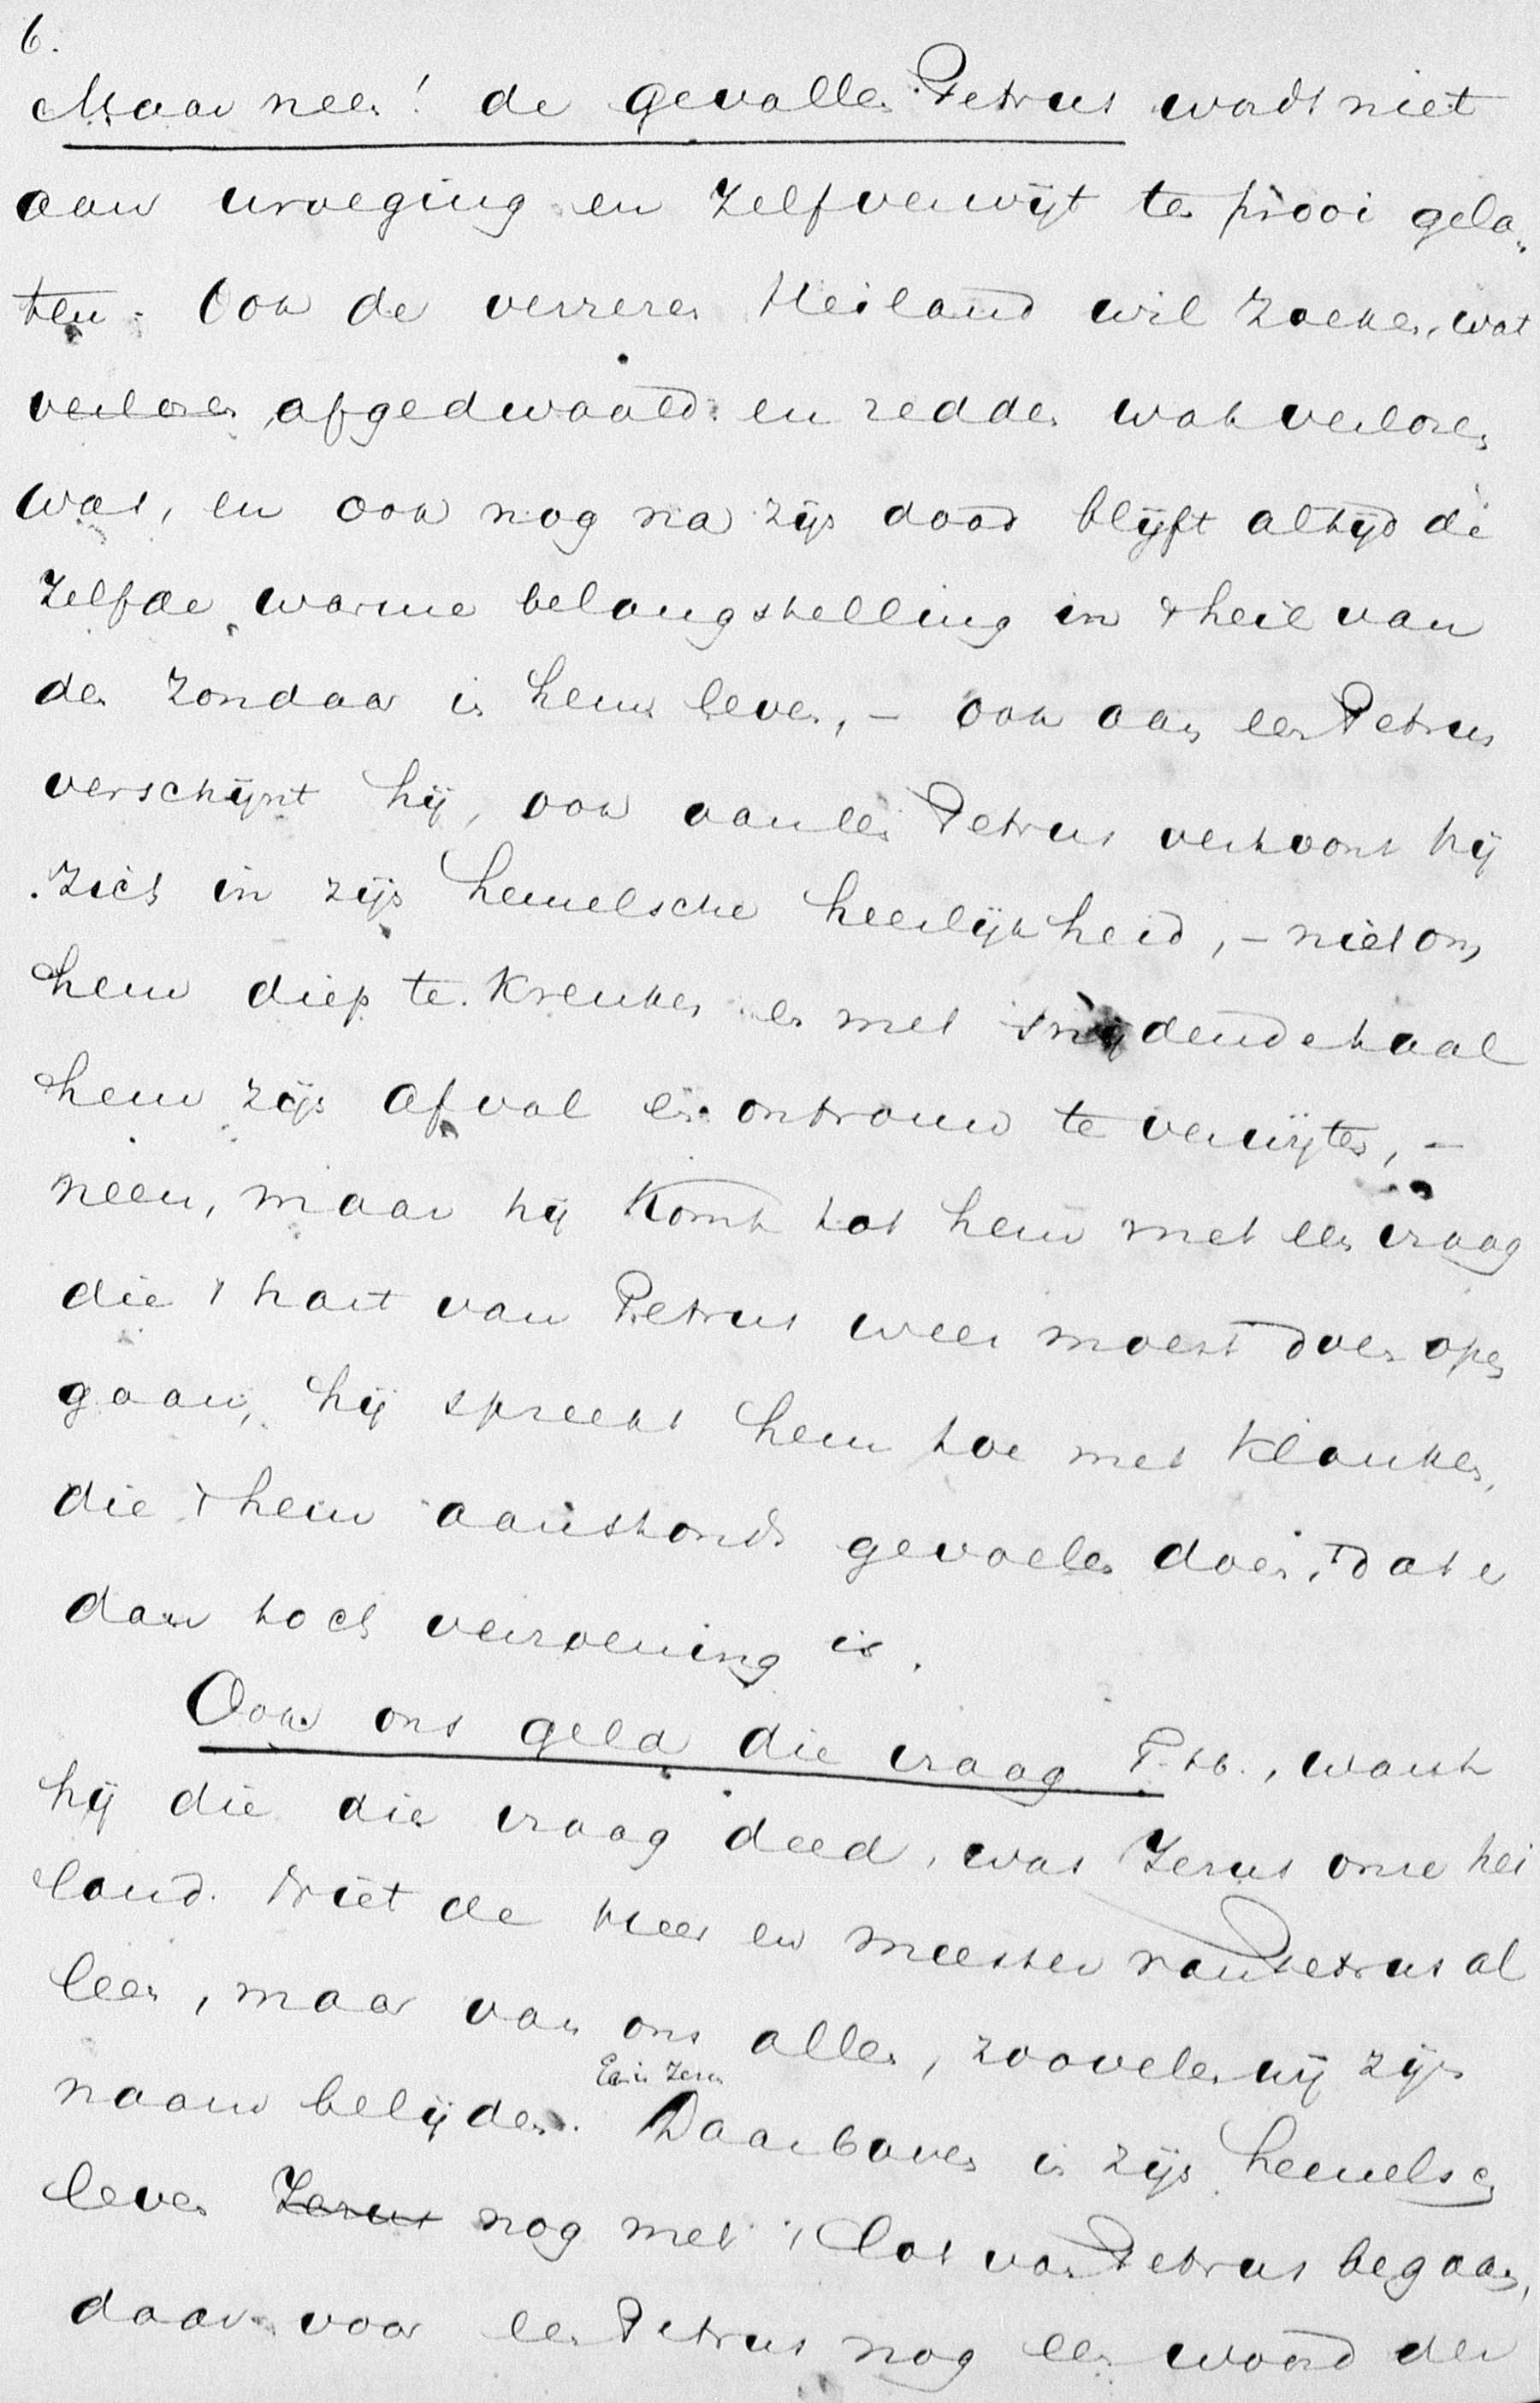 6.
Maar neen! de gevallen Petrus wordt niet
aan wroeging en zelfverwijt ten prooi gela-
ten. Ook de verrezen Heiland wil zoeken, wat
verloren afgedwaald en redden wat verloren
was, en ook nog na zijn dood blijft altijd de
zelfde warme belangstelling in 't heil van
den zondaar in hem leven, - ook aan een Petrus
verschijnt hij, ook aan een Petrus vertoont hij
zich in zijn hemelsche heerlijkheid, - niet om
hem diep te krenken en met snijdende taal
hem zijn afval en ontrouw te verwijten, -
neen, maar hij komt tot hem met een vraag
die 't hart van Petrus weer moest doen open
gaan, hij spreekt hem toe met klanken,
die 't hem aanstonds gevoelen doen, dat er
dan toch verzoening is.
Ook ons geld die vraag T. h., want
hij die die vraag deed, was Jezus onze hei
land. Niet de Heer en meester van Petrus al
leen, maar van ons allen, zoovelen wij zijn
naam belijden. Daarboven in zijn hemelsch
En is Jezus
leven Jezus nog met 't lot van Petrus begaan,
daar voor een Petrus nog een woord der